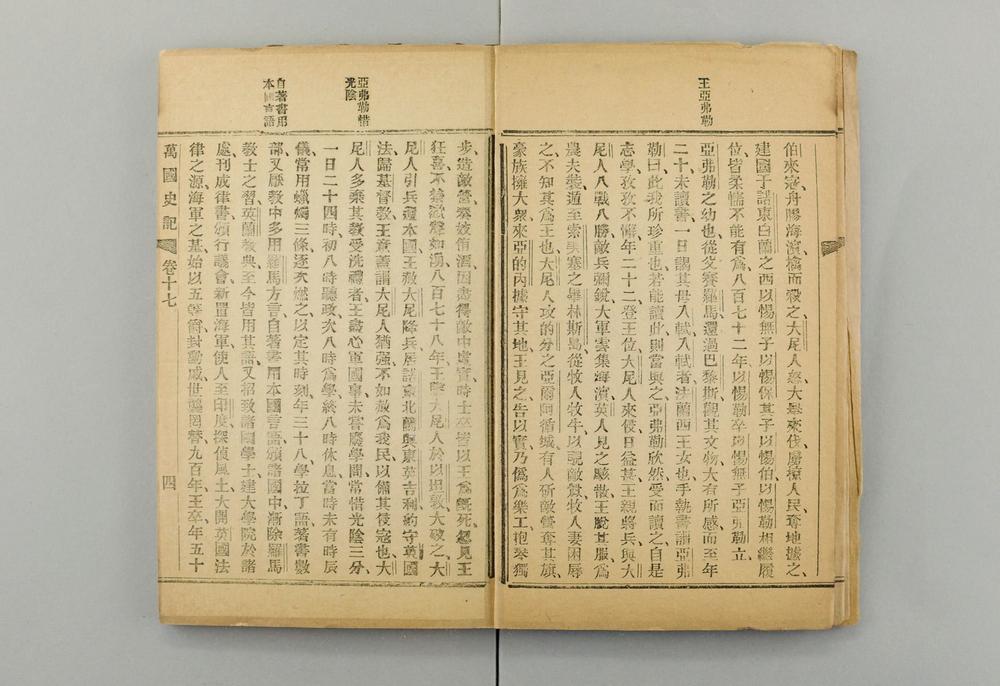 王亞弗勒
伯來寇、舟膠海濱、擒而殺之、大尼人怒、大舉來伐、屠掠人民、奪地據之、
建國于諾東白蘭之西、以惕無子、以惕保其子以惕伯以惕勒相繼履
位、皆柔懦不能有爲、八百七十二年、以惕勒卒、以惕無子、亞弗勒立、
亞弗勒之幼也、從父賽羅馬、還過巴黎斯、觀其文物、大有所感、而至年
二十、未讀書、一日謁其母入敵、入敵者法蘭西王女也、手執書、語亞弗
勒曰、此我所珍重也、若能讀此、則當與之、亞弗勒欣然受而讀之、自是
志學孜孜不懈、年二十二、登王位、大尼人來侵日益甚、王親將兵、與大
尼人八戰八勝、敵兵彌銳、大軍雲集海濱、英人見之駭散、王脫其服、爲
農夫裝、遁至索塞之畢林斯島、從牧人牧牛、以覘敵釁、牧人妻困辱
之、不知其爲王也、大尼人攻的分之亞爾阿循城、有人斫敵營、奪其旗、
豪族擁大衆來亞的內、據守其地、王見之、告以實、乃僞爲樂工、抱琴獨
步造敵營、奏妓侑酒、因盡得敵中虛實、時士卒皆以王爲既死、忽見王
狂喜、不禁歡聲如湧、八百七十八年、王擊大尼人於以坦敦、大破之、大
尼人引兵還本國、王赦大尼降兵、居諾東北蘭與東英吉利、約守英國
法、歸基督敎、王意善謂大尼人猶強、不如赦爲我民、以備其侵寇也、大
尼人多棄其敎受洗禮者、王盡心軍國事、未嘗廢學問、常惜光陰、三分
一日二十四時、初八時聽政、次八時爲學、終八時休息、當時未有時辰
儀、常用蠟燭三條、逐次燃之、以定其時刻、年三十八、學拉丁語、著書數
部、又厭敎中多用羅馬方言、自著書用本國言語、頒諸國中、漸除羅馬
敎士之習、英蘭敎典、至今皆用其語、又招致諸國學士、建大學院於諸
處、刊成律書、頒行議會、新置海軍、使人至印度、探偵風土、大開英國法
律之源、海軍之基、始以五等爵封勳戚、世襲罔替、九百年王卒、年五十
亞弗勒惜
光陰
自著書用
本國言語
萬國史記
卷十七
四